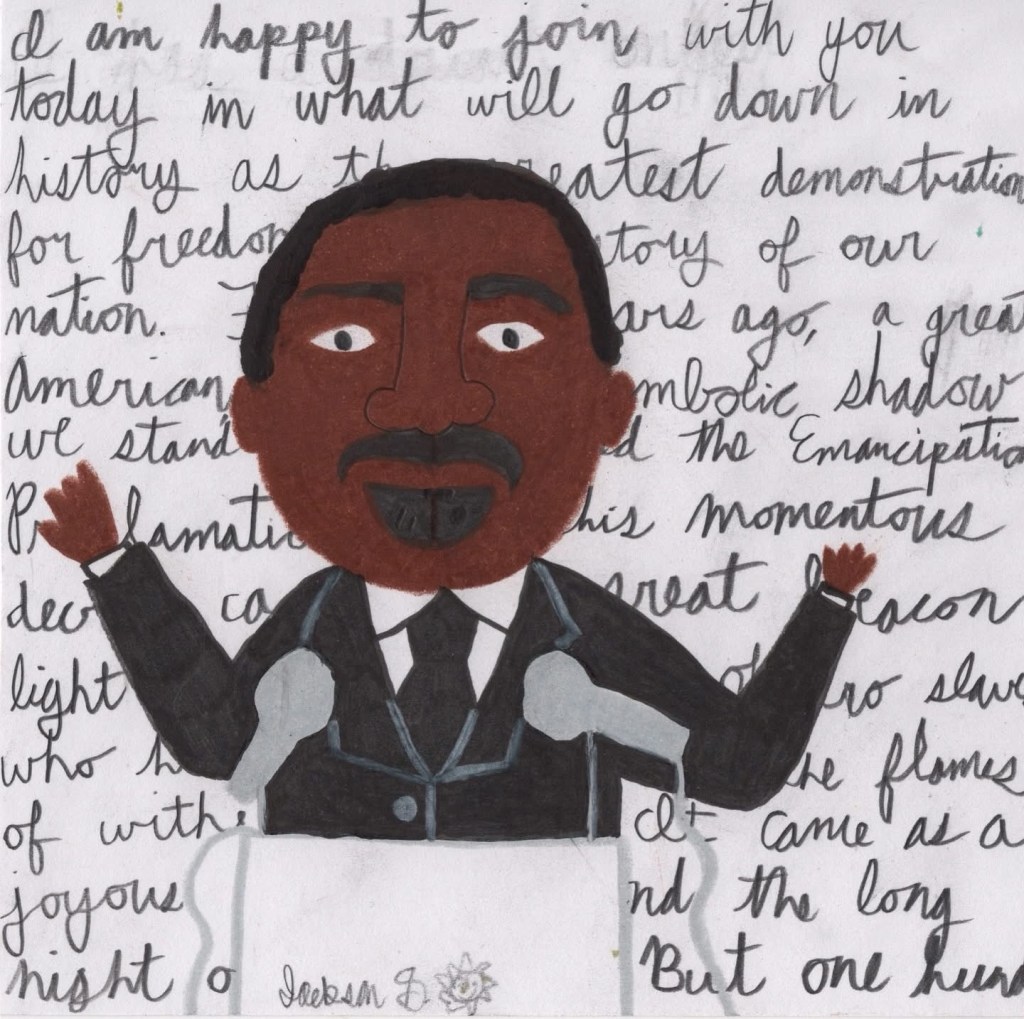 I am happy to join with you
today in what will go down in
history as th reatest demonstration
for freedom tory of our
nation. F ars ago, a great
American, mbolic shadow
we stand d the Emancipation
P lamatic his momentous
dec ca reat eacon
light of ro slave
who h he flames
of with It came as a
joyous nd the long
night o But one hund
Jackson G.